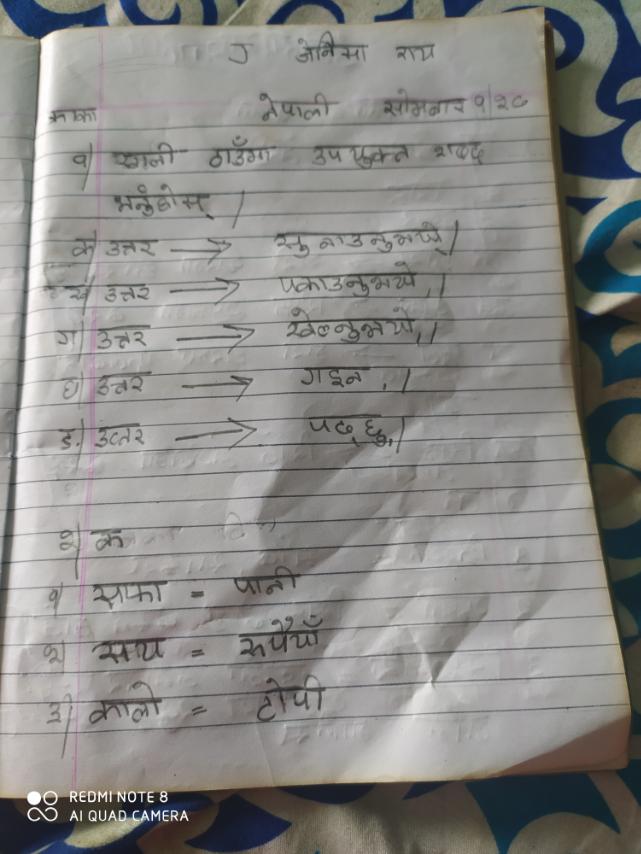 जेनिसा राय
नेपाली सोमबार १/२८
१) खाली ठाउँमा उपयुक्त शब्द
भर्नुहोस् |
क) उत्तर → सुनाउनुभयो |
ख) उत्तर → पकाउनुभयो, |
ग) उत्तर → खेल्नुभयो, |
घ) उत्तर → गइन, |
ङ.) उत्तर → पढ्छु, |
२) क
१) सफा = पानी
२) सय = रुपैयाँ
३) कालो = टोपी
REDMI NOTE 8
AI QUAD CAMERA